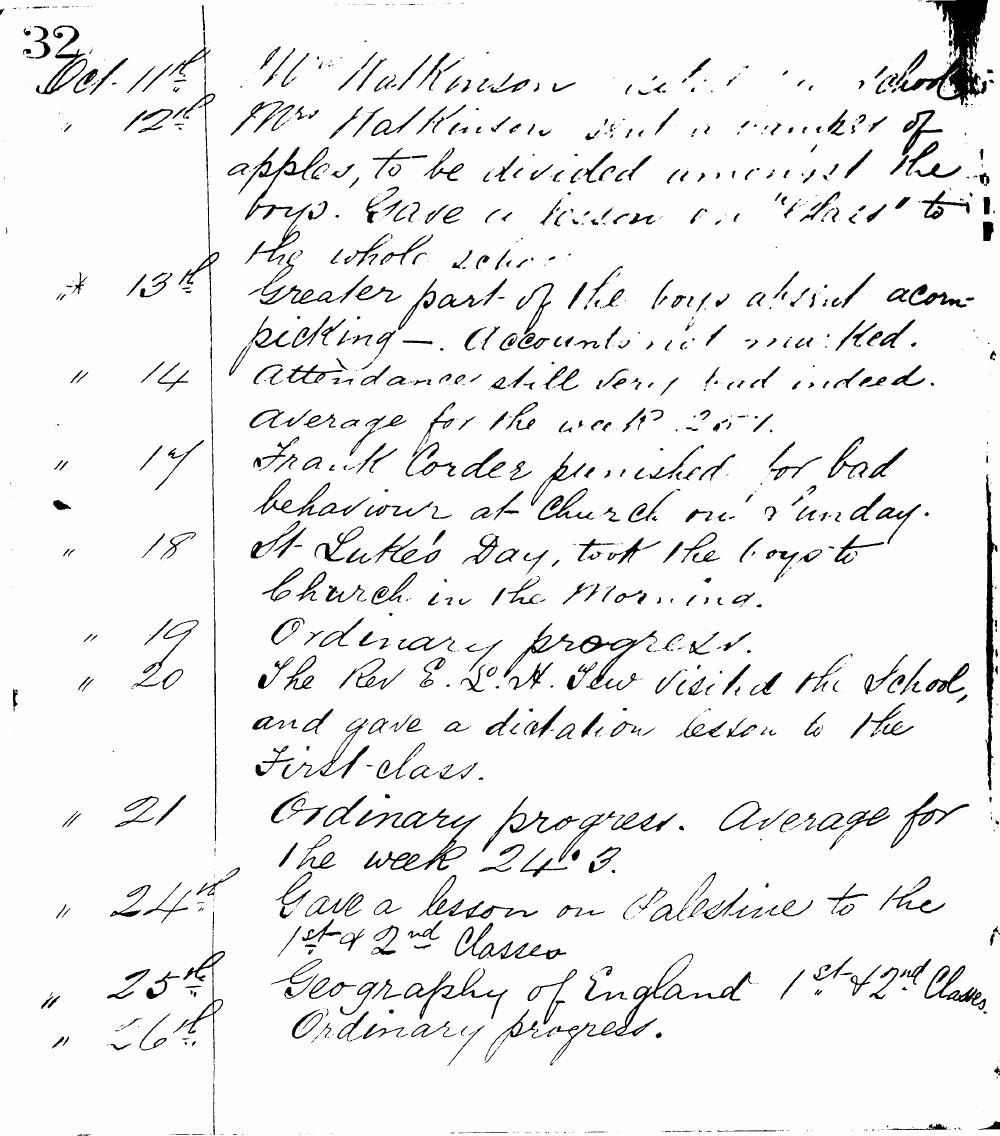 32
Oct. 11th Mr Watkinson visited the school
" 12th Mrs Watkinson sent a hamper of
apples, to be divided amongst the
boys. Gave a lesson on "Glass" to
the whole school
"* 13th Greater part of the boys absent acorn-
picking —. Accounts not marked.
" 14 Attendance still very bad indeed.
Average for the week
" 17 Frank Corder punished for bad
behaviour at Church on Sunday.
" 18 St Luke's Day, took the boys to
Church in the Morning.
" 19 Ordinary progress.
" 20 The Rev E. L. H. Tew visited the School,
and gave a dictation lesson to the
First-class.
" 21 Ordinary progress. Average for
the week 24.3.
" 24th Gave a lesson on Palestine to the
1st & 2nd Classes
" 25th Geography of England 1st & 2nd Classes.
" 26th Ordinary progress.